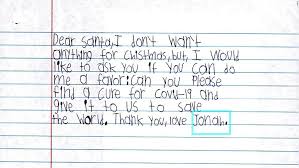 Dear santa, I don't want
anything for christmas, but, I would
like to ask you if you can do
me a favor: can you please
find a cure for covid-19 and
give it to us to save
the world. Thank you, love Jonah.